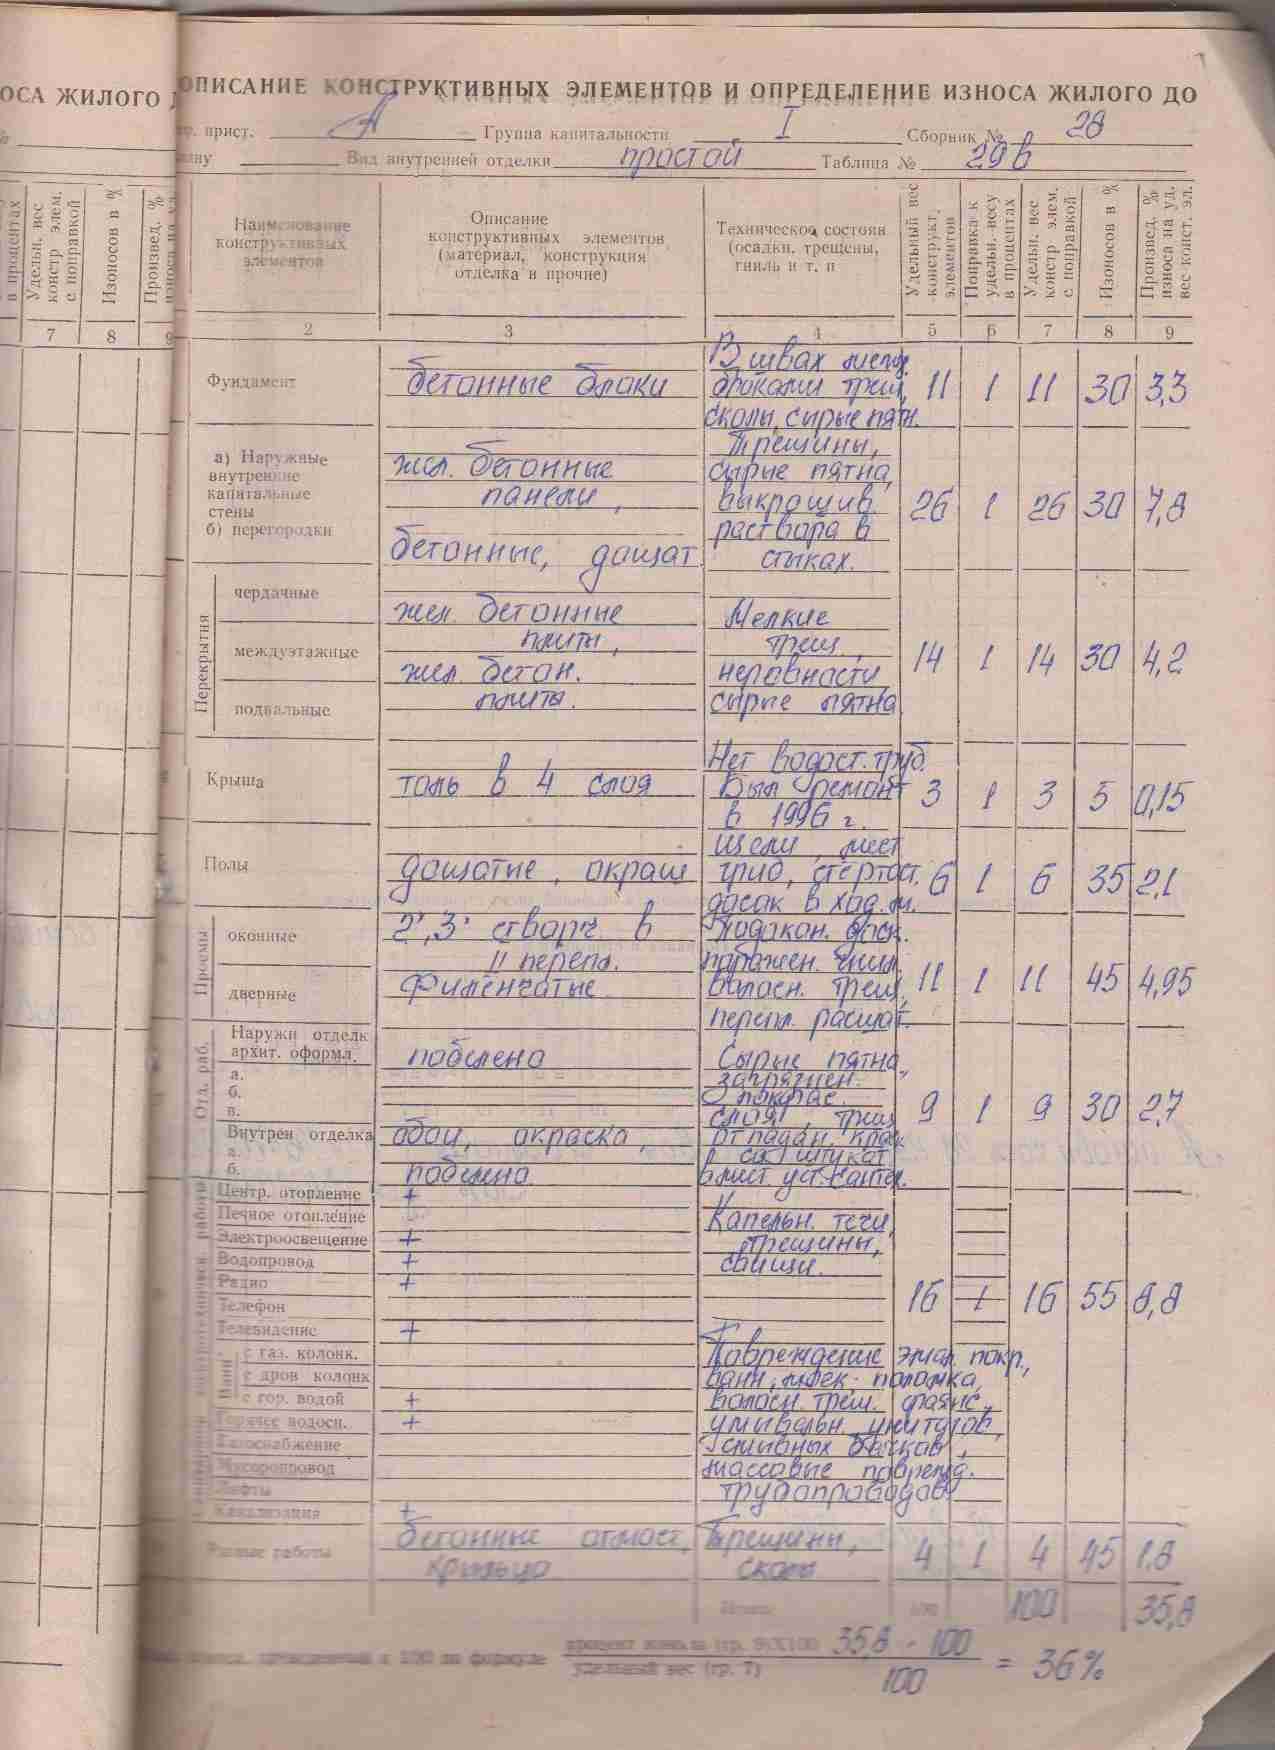 ОСА ЖИЛОГО
ОПИСАНИЕ КОНСТРУКТИВНЫХ ЭЛЕМЕНТОВ И ОПРЕДЕЛЕНИЕ ИЗНОСА ЖИЛОГО ДО
прист. А Группа капитальности I Сборник № 28
Вид внутренней отделки простой Таблица № 29в
в процентах
Удельн. вес констр элем. с поправкой
Изоносов в %
Произвед. %
Наименование конструктивных элементов
Описание конструктивных элементов (материал, конструкция отделка и прочие)
Техническое состоян (осадки, трещены, гниль и т. п
Удельный вес конструкт. элементов
Поправка к удельн. весу в процентах
Удельн. вес констр. элем. с поправкой
Изоносов в %
Произвед. % износа на уд. вес конст. эл.
7 8 9
2 3 4 5 6 7 8 9
В швах
Фундамент бетонные блоки блоками трещ, 11 1 11 30 3,3
сколы, сырые пятн.
Трещины,
а) Наружные внутренние капитальные стены
жел. бетонные сырые пятна,
панели, выкрошив. 26 1 26 30 7,8
раствора в
б) перегородки
бетонные, дощат. стыках.
Перекрытия
чердачные
жел. бетонные Мелкие
плиты, трещ.,
междуэтажные 14 1 14 30 4,2
жел. бетон. неровности,
плиты. сырые пятна
подвальные
Нет водост. труб.
Крыша толь в 4 слоя Был ремонт 3 1 3 5 0,15
в 1996 г.
Щели, мест
Полы дощатые, окраш гриб, стертост. 6 1 6 35 2,1
досок в ход. м.
Проемы
оконные 2х, 3х створч. в Подокон. доск.
II перепл. поражен. гнил,
дверные Филенчатые волосн. трещ, 11 1 11 45 4,95
перепл. расшат.
Отд. раб.
Наружн отделк
архит. оформл. побелено Сырые пятна,
а. загрязнен.
б. покрас.
в. слоя, трещ 9 1 9 30 2,7
Внутрен отделка обои, окраска, отпадан. краск
а. со штукат
б. побелено.
Центр. отопление +
Печное отопление Капельн. течи,
Электроосвещение + трещины,
Водопровод + свищи.
Радио +
Телефон 16 1 16 55 8,8
Телевидение +
Ванн
с газ. колонк. Повреждение эмал. покр.,
с дров колонк ванн, поломка,
с гор. водой + волосн. трещ. фаянс.
Горячее водосн. + умывальн. унитазов,
Газоснабжение смывных бачков,
Мусоропровод массовые поврежд.
Лифты трубопроводов
Канализация +
Разные работы бетонные отмост, Трещины, 4 1 4 45 1.8
крыльцо сколы
Итого 100 100 35,8
приведенный к 100 по формуле процент износа (гр. 9)Х100 35,8 · 100
удельный вес (гр. 7) 100 = 36%